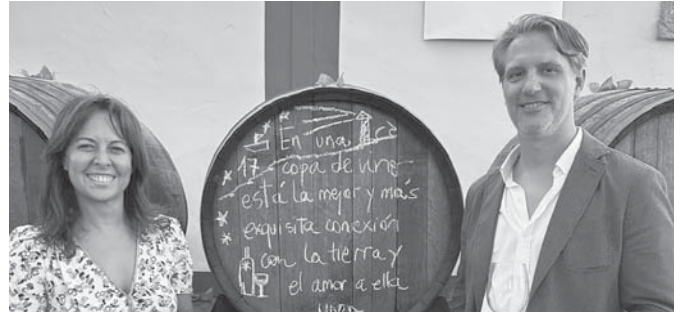 En una
copa de vino
está la mejor y más
exquisita conexión
con la tierra y
el amor a ella